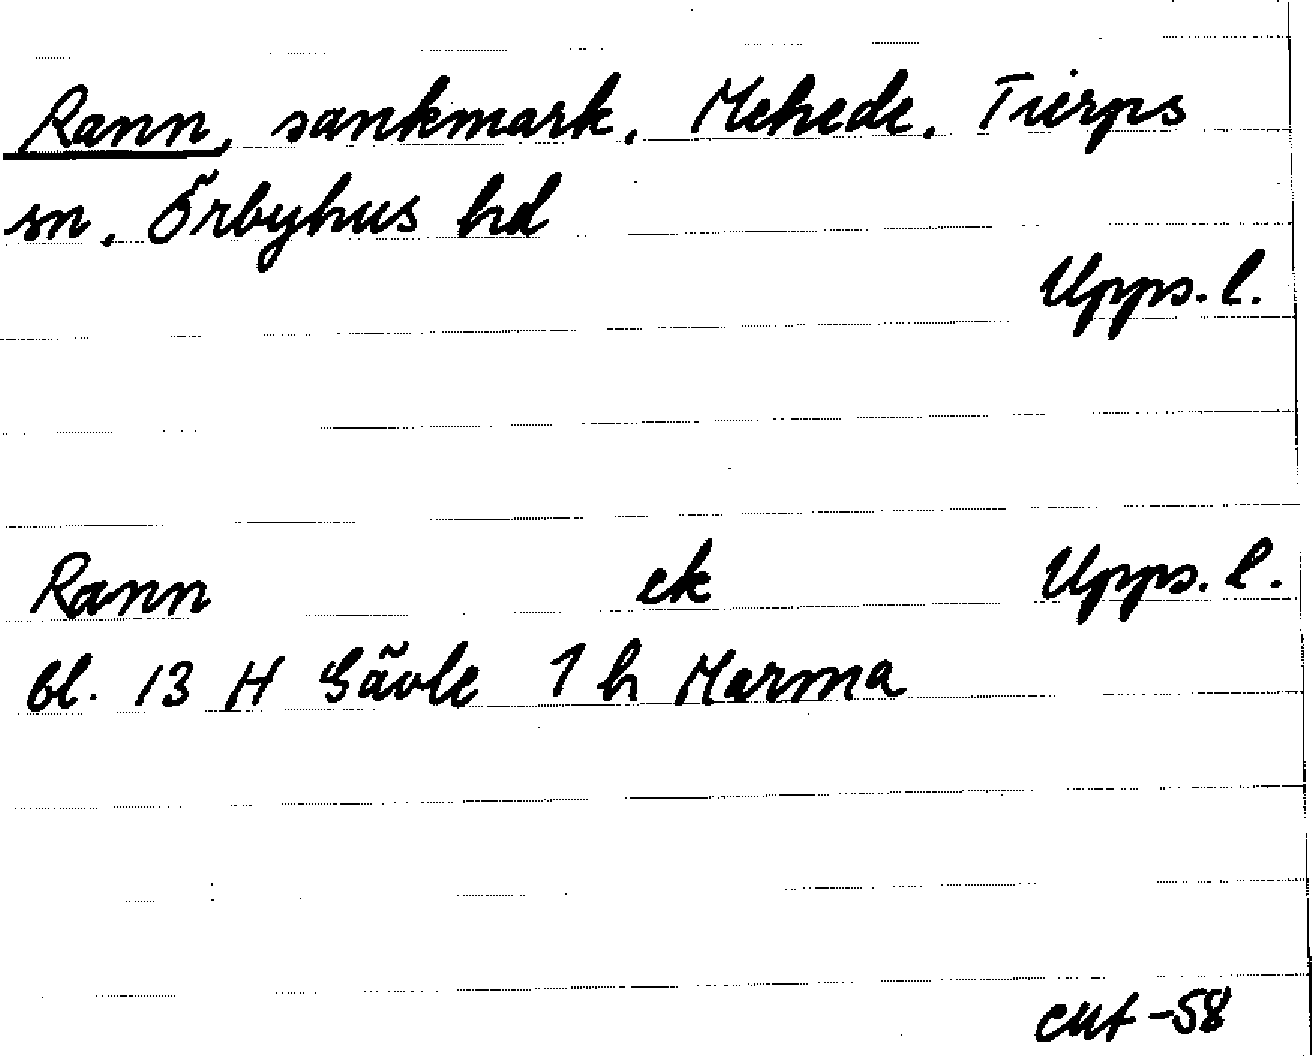 Rann, sankmark, Mehede, Tierps
sn, Örbyhus hd
Upps. l.
Rann ek Upps. l.
bl. 13 H Gävle 1 h Marma
CMf -58